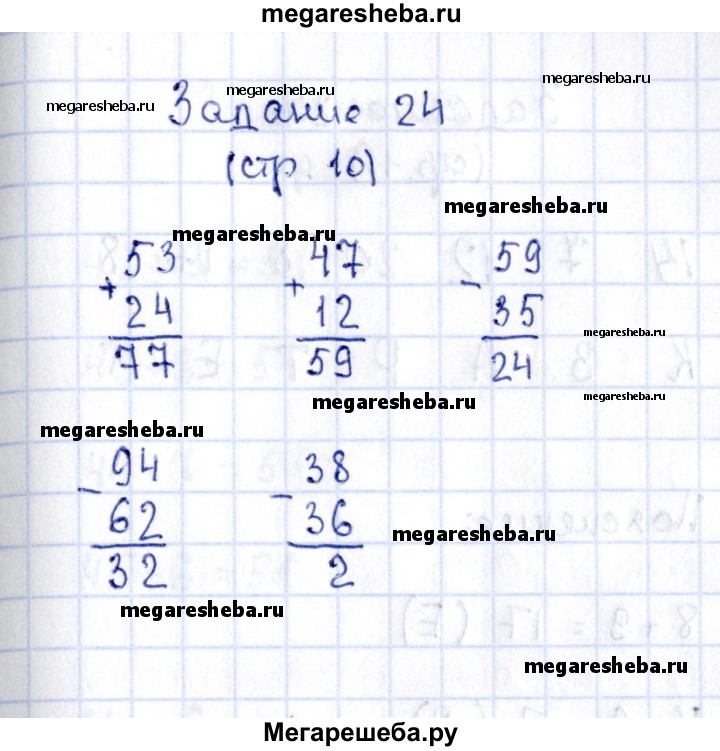 megaresheba.ru
megaresheba.ru
megaresheba.ru
megaresheba.ru
Задание 24
(стр. 10)
megaresheba.ru
megaresheba.ru
53 47 59
+ + -
24 12 35
megaresheba.ru
77 59 24
megaresheba.ru
megaresheba.ru
megaresheba.ru
94 38
- -
62 36
megaresheba.ru
32 2
megaresheba.ru
8+9=17 (Е)
megaresheba.ru
Мегарешеба.ру